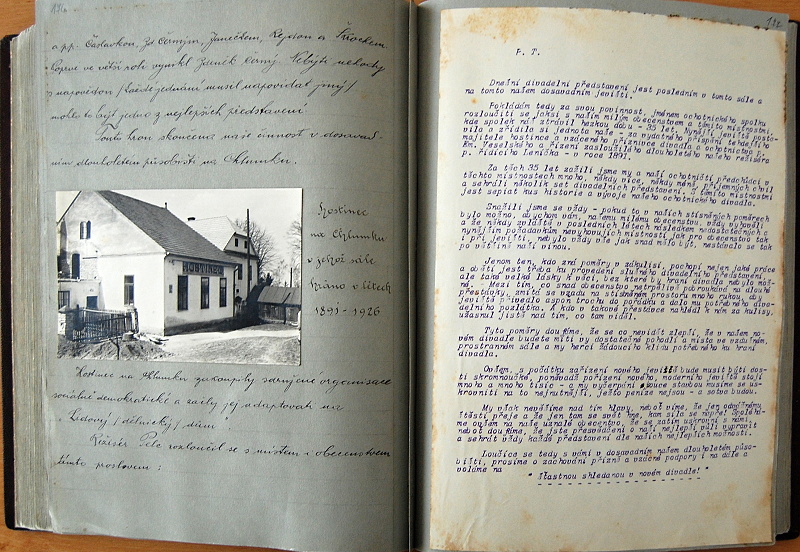 a pp. Čáslavkou, Zd. Černým, Janečkem,
Poprvé ve větší roli vynikl Zdeněk Černý. Nebýti nehody
s nápovědou /Každé jednání musil napovídat jiný/
mohlo to býti jedno z nejlepších představení
Touto hrou skončena naše činnost v dosavad-
ním dlouholetém působišti na Chlumku.
HOSTINEC
Hostinec
na Chlumku
v jehož sále
hráno v létech
1891-1926
Hostinec na Chlumku zakoupily sdružené organisace
sociálně demokratické a začly jej adaptovati na
Lidový /dělnický/ dům.
Režisér Pelc rozloučil se s místem i obecenstvem
těmito proslovem:
P. T.
Dnešní divadelní představení jest posledním v tomto sále a
na tomto našem dosavadním jevišti.
Pokládám tedy za svou povinnost, jménem ochotnického spolku
rozloučiti se jaksi s naším milým obecenstvem a těmito místnostmi
kde spolek náš ztrávil hezkou dobu - 35 let. Nynější jeviště posta-
vila a zřídila si jednota naše - za vydatného přispění tehdejšího
majitele hostince a vzácného příznivce divadla a ochotnictva p.
Em. Veselského a řízení zasloužilého dlouholetého našeho režiséra
p. řídícího Leníčka - v roce 1891.
Za těch 35 let zažili jsme my a naši ochotničtí předchůdci v
těchto místnostech mnoho, někdy více, někdy méně, příjemných chvil
a sehráli několik set divadelních představení. S těmito místnostmi
jest sepiat kus historie a vývoje našeho ochotnického divadla.
Snažili jsme se vždy - pokud to v našich stísněných poměrech
bylo možno, abychom vám, našemu milému obecenstvu, vždy vyhověli
a že někdy zvláště v posledních létech následkem nedostatečných a
nynějším požadavkům nevyhovujících místností jak pro obecenstvo tak
i při jevišti, nebylo vždy vše jak snad mělo býti, nestávalo se tak
po většině naší vinou.
Jenom ten, kdo zná poměry v zákulisí, pochopí nejen jaké práce
a obětí jest třeba ku provedení slušného divadelního představení,
ale také velké lásky k věci, bez které by hraní divadla nebylo mož-
né. Mezi tím, co snad obecenstvo netrpělivě pobrukovalo na dlouhé
přestávky, zmítá se vzadu na stísněném prostoru mnoho rukou, aby
jeviště přivedlo aspoň trochu do pořádku a dalo mu potřebného diva-
delního pozlátka. A kdo v takové přestávce nahlédl k nám za kulisy,
užasnul jistě nad tím, co tam viděl.
Tyto poměry doufáme, že se co nevidět zlepší, že v našem no-
vém divadle budete míti vy dostatečné pohodlí a místo ve vzdušném,
prostranném sále a my herci žádoucího klidu potřebného ku hraní
divadla.
Ovšem, s počátku zařízení nového jeviště bude musit býti dos-
ti skromnoučké, ponevádž pořízení nového, moderního jeviště stojí
mnoho a mnoho tisíc - a my vyčerpáni jsouce stavbou musíme se us-
krovniti na to nejnutnější, ježto peníze nejsou - a sotva budou.
My však nevěšíme nad tím hlavy, neboť víme, že jen odvážnému
štěstí přeje a že jen tam se svět hne, kam síla se napře! Spoléhá-
me ovšem na naše uznalé obecenstvo, že se zatím uskrovní s námi,
neboť doufáme, že jste přesvědčeno o naší nejlepší vůli vypravit
a sehrát vždy každé představení dle našich nejlepších možností.
Loučíce se tedy s vámi v dosavadním našem dlouholetém půso-
bišti, prosíme o zachování přízně a vzácné podpory i na dále a
voláme na
" Šťastnou shledanou v novém divadle! "